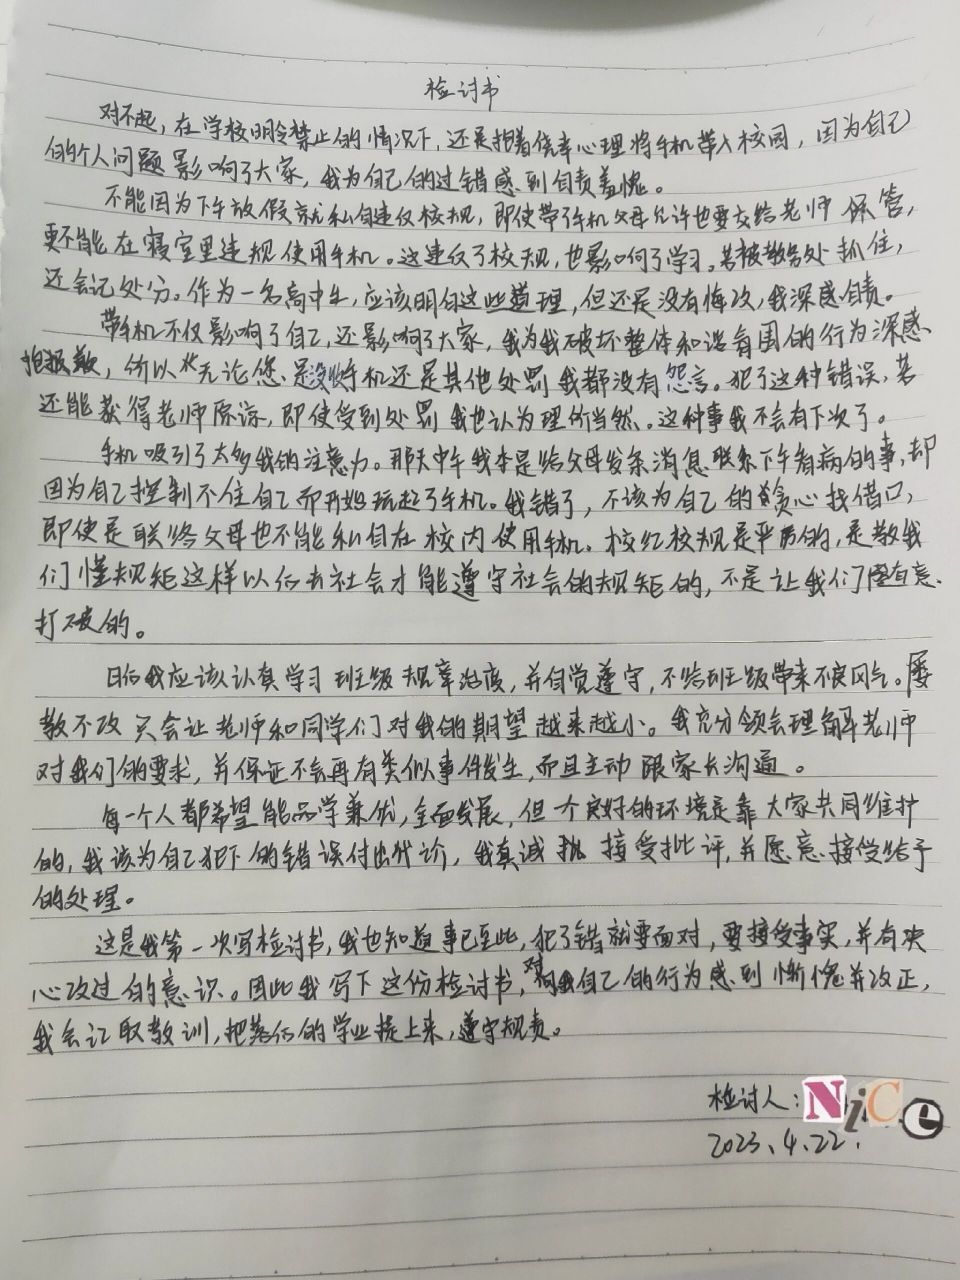 检讨书
对不起，在学校明令禁止的情况下，还是抱着侥幸心理将手机带入校园，因为自己
的个人问题影响了大家，我为自己的过错感到自责羞愧。
不能因为下午放假就私自违反校规，即使带了手机父母允许也要交给老师保管，
更不能在寝室里违规使用手机。这违反了校规，也影响了学习。若被教务处抓住，
还会记处分。作为一名高中生，应该明白这些道理，但还是没有悔改，我深感自责。
带手机不仅影响了自己，还影响了大家，我为我破坏整体和谐氛围的行为深感
抱歉，所以无论您是没收手机还是其他处罚我都没有怨言。犯了这种错误，若
还能获得老师原谅，即使受到处罚我也认为理所当然。这种事我不会有下次了。
手机吸引了太多我的注意力。那天中午我本是给父母发条消息联系下午看病的事，却
因为自己控制不住自己而开始玩起了手机。我错了，不该为自己的贪心找借口，
即使是联络父母也不能私自在校内使用手机。校纪校规是严厉的，是教我
们懂规矩这样以后去社会才能遵守社会的规矩的，不是让我们有意
打破的。
日后我应该认真学习班级规章制度，并自觉遵守，不给班级带来不良风气。屡
教不改只会让老师和同学们对我的期望越来越小。我充分领会理解老师
对我们的要求，并保证不会再有类似事件发生，而且主动跟家长沟通。
每一个人都希望能品学兼优，全面发展，但一个良好的环境是靠大家共同维护
的，我该为自己犯下的错误付出代价，我真诚接受批评，并愿意接受给予
的处理。
这是我第一次写检讨书，我也知道事已至此，犯了错就要面对，要接受事实，并有决
心改过的意识。因此我写下这份检讨书，对我自己的行为感到惭愧并改正，
我会记取教训，把落后的学业提上来，遵守规责。
检讨人：NiCe
2023、4、22.